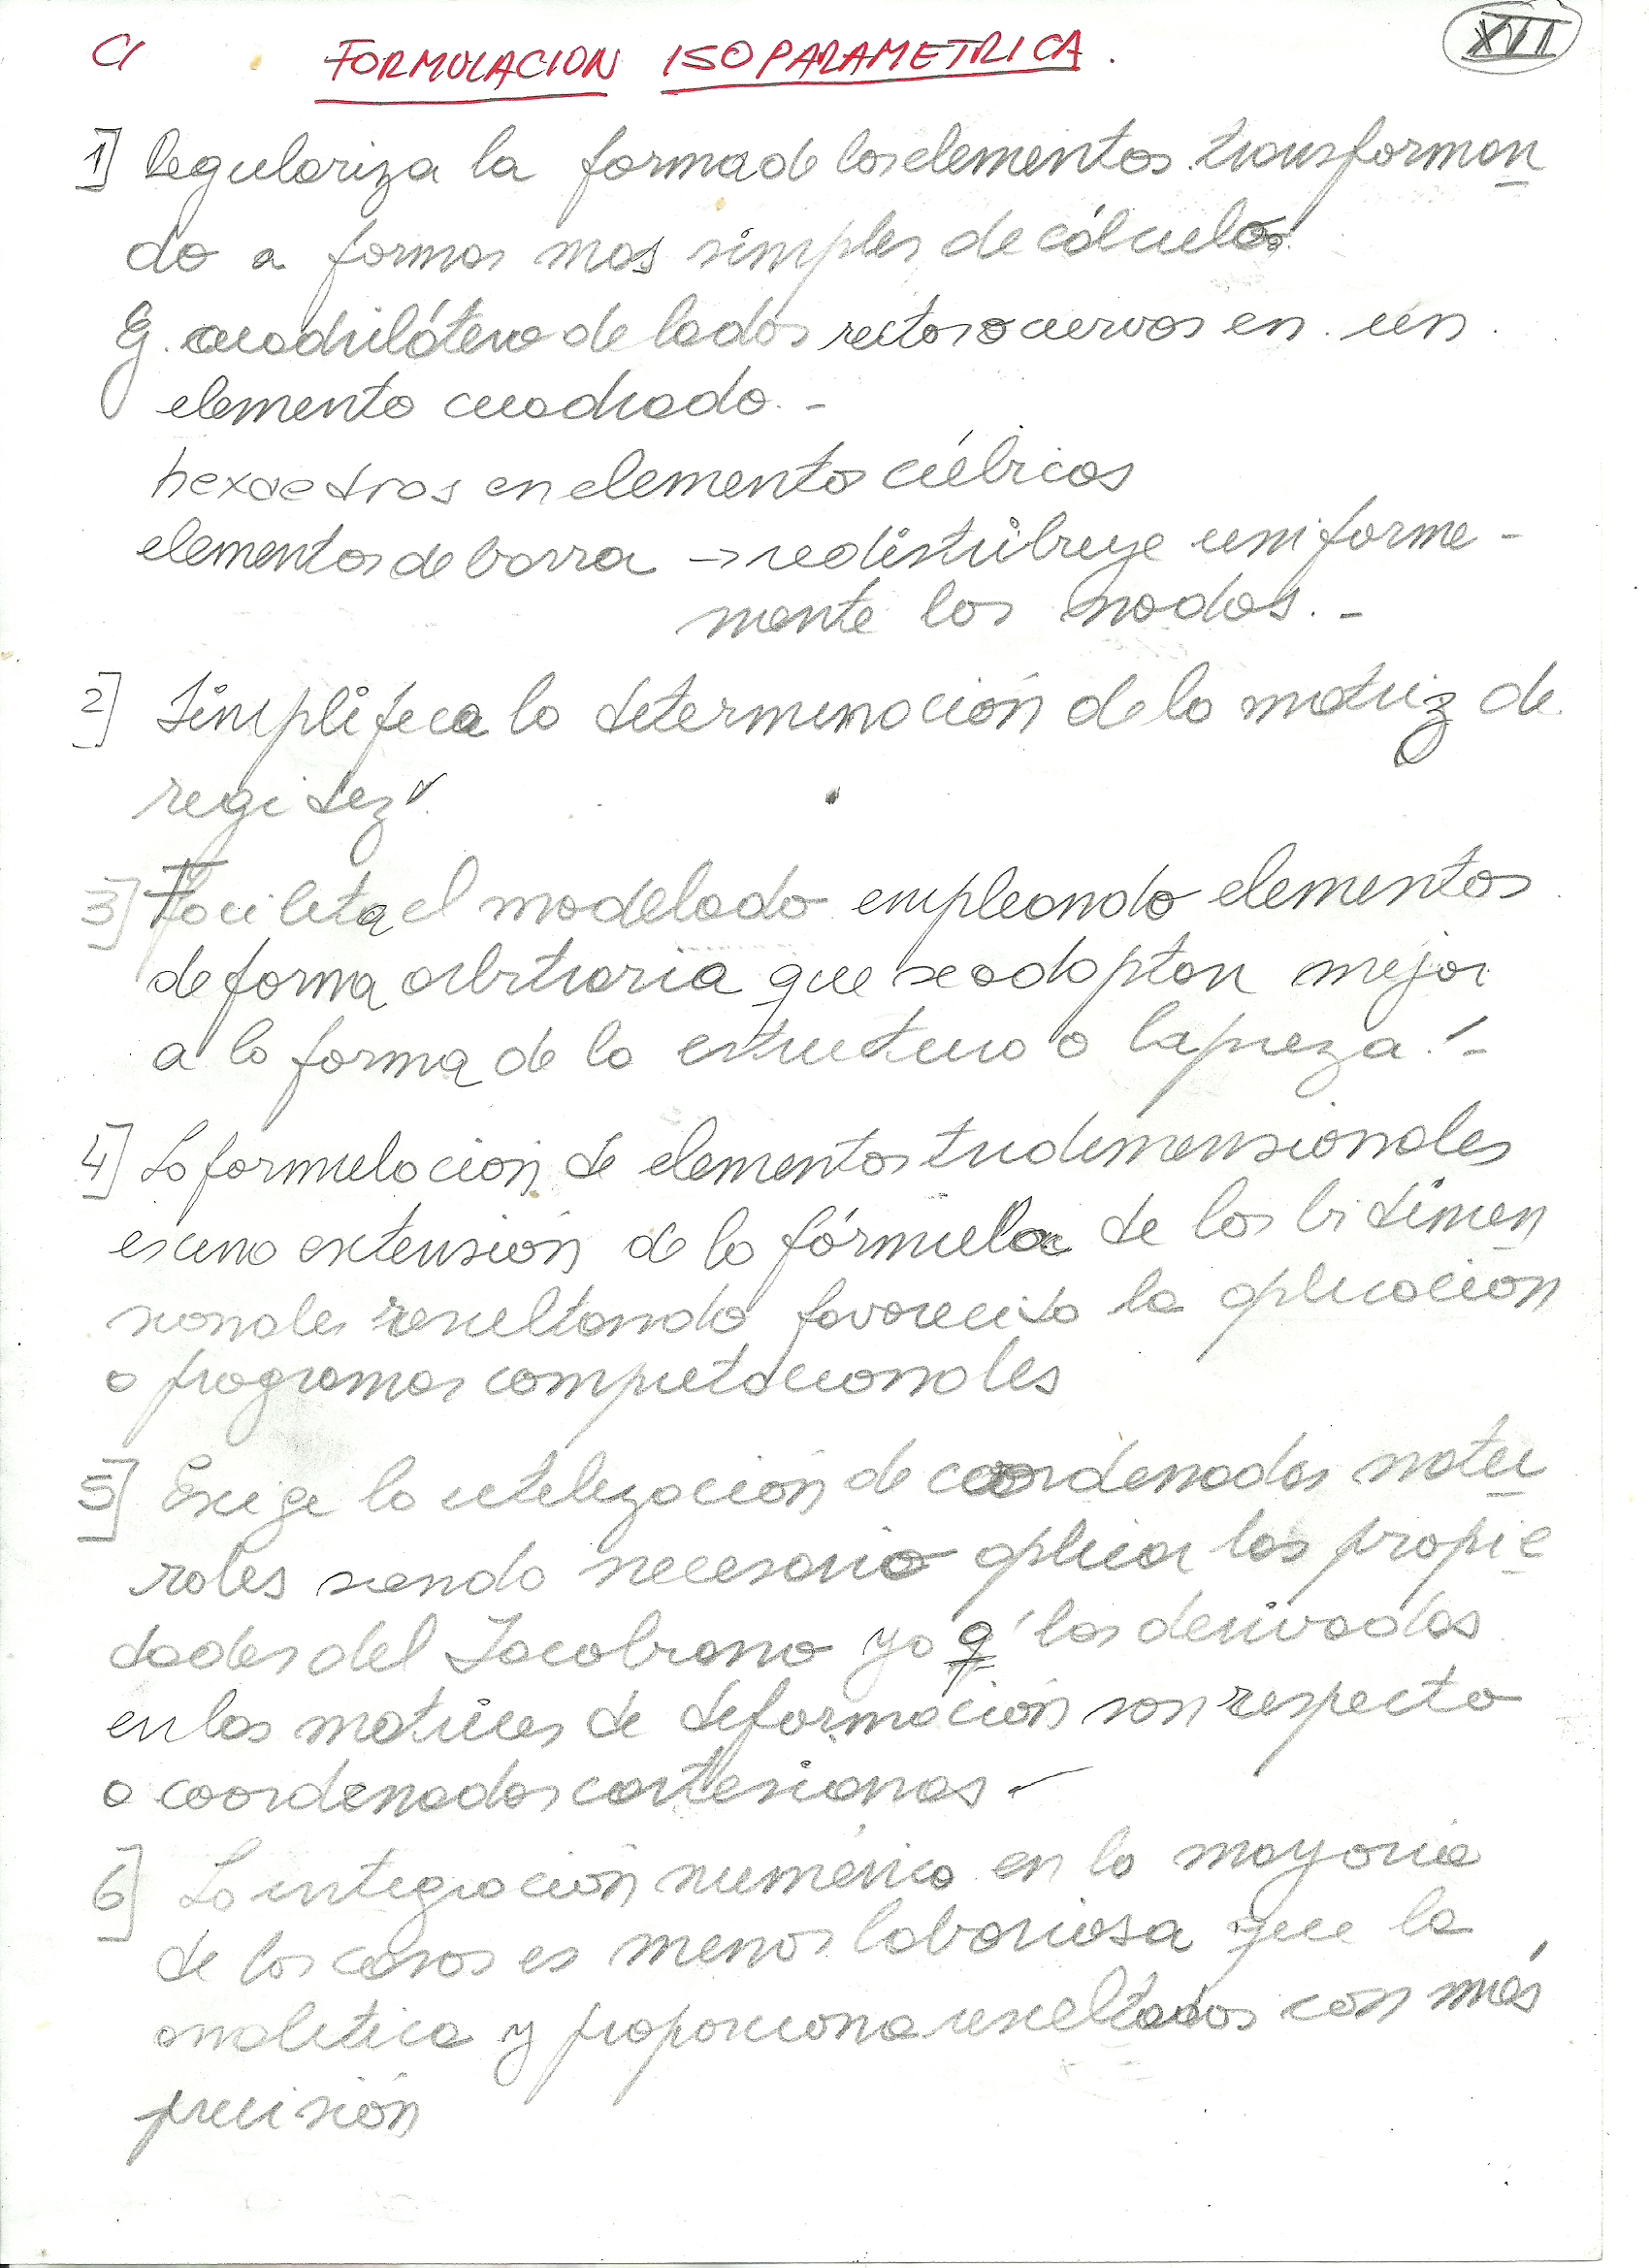 C/ FORMULACION ISOPARAMETRICA. XII
1] Regulariza la forma de los elementos transforman
do a formas mas simples de cálculo.
Ej. cuadrilátero de lados rectos o curvos en un
elemento cuadrado.-
hexaedros en elemento cúbicos
elementos de barra → redistribuye uniforme-
mente los nodos.-
2] Simplifica la determinación de la matriz de
regidez
3] Facilita el modelado empleando elementos
de forma arbitraria que se adaptan mejor
a la forma de la estructura o la pieza.-
4] La formulación de elementos tridimensionales
es una extensión de la fórmula de los bidimen
sionales resultando favorecida la aplicación
a programas computacionales
5] Exige la utilización de coordenadas natu
rales siendo necesario aplicar las propie
dades del Jacobiano ya q' las derivadas
en las matrices de deformación son respecto
a coordenadas cartesianas -
6] La integración numérica en la mayoría
de los casos es menos laboriosa que la
analitica y proporciona resultados con más
precisión